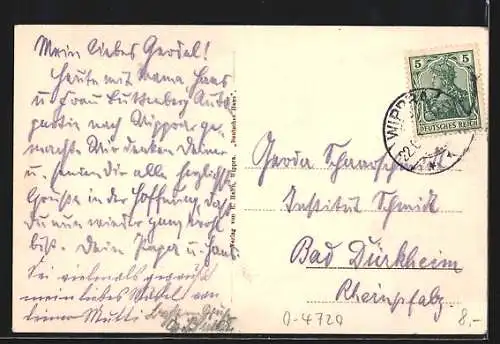 Mein liebes Gerdel!
Heute mit Mama Hans
u. Frau Luttenberg Auto
partie nach Wippra ge
macht. Wir denken Deiner
u. senden Dir alle herzliche
Grüsse in der Hoffnung, dass
Du nun wieder ganz wohl
bist. Dein Papa u. Hans.
Sei vielmals gegrüsst
mein liebes Mädel von
Deiner Mutti
Wippra. "Deutsches Haus".
5
DEUTSCHES REICH
WIPPRA
Gerda
Institut Schmidt
Bad Dürkheim
Rheinpfalz.
O-4720
8,-